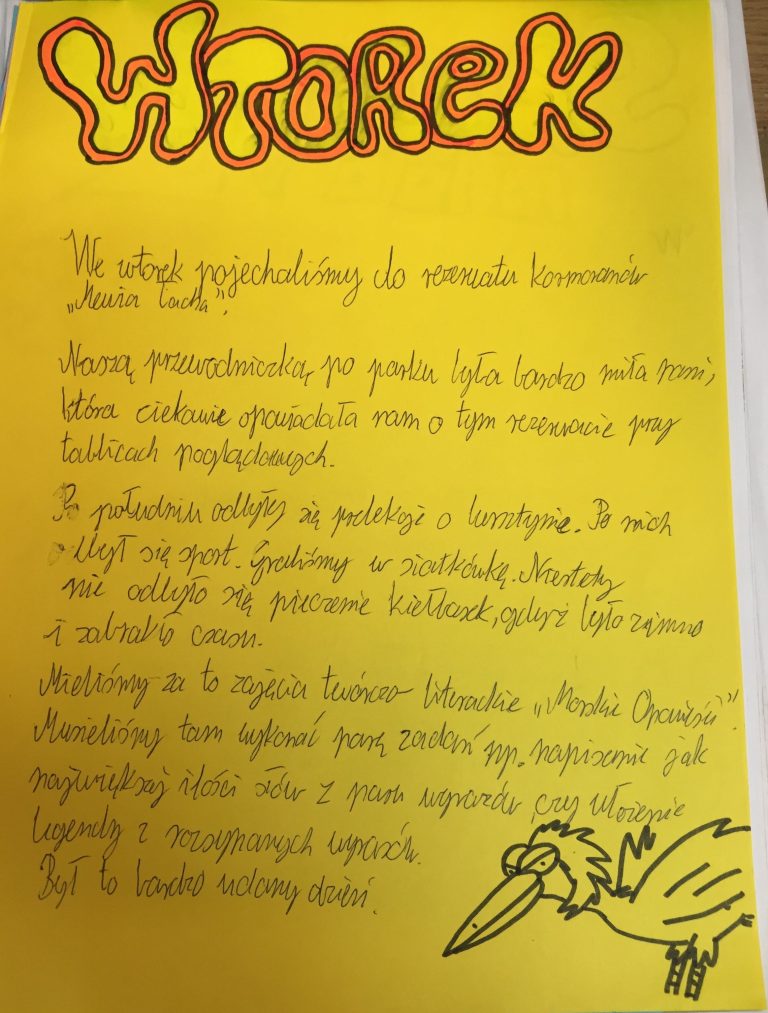 WTOREK
We wtorek pojechaliśmy do rezerwatu kormoranów
„Mewia Łacha".
Naszą przewodniczką po parku była bardzo miła pani,
która ciekawie opowiadała nam o tym rezerwacie przy
tablicach poglądowych.
Po południu odbyły się prelekcje o bursztynie. Po nich
odbył się sport. Graliśmy w siatkówkę. Niestety
nie odbyło się pieczenie kiełbasek, gdyż było zimno
i zabrakło czasu.
Mieliśmy za to zajęcia twórczo literackie „Morskie Opowieści".
Musieliśmy tam wykonać parę zadań np. napisanie jak
największej ilości słów z paru wyrazów, czy ułożenie
legendy z rozsypanych wyrazów.
Był to bardzo udany dzień.